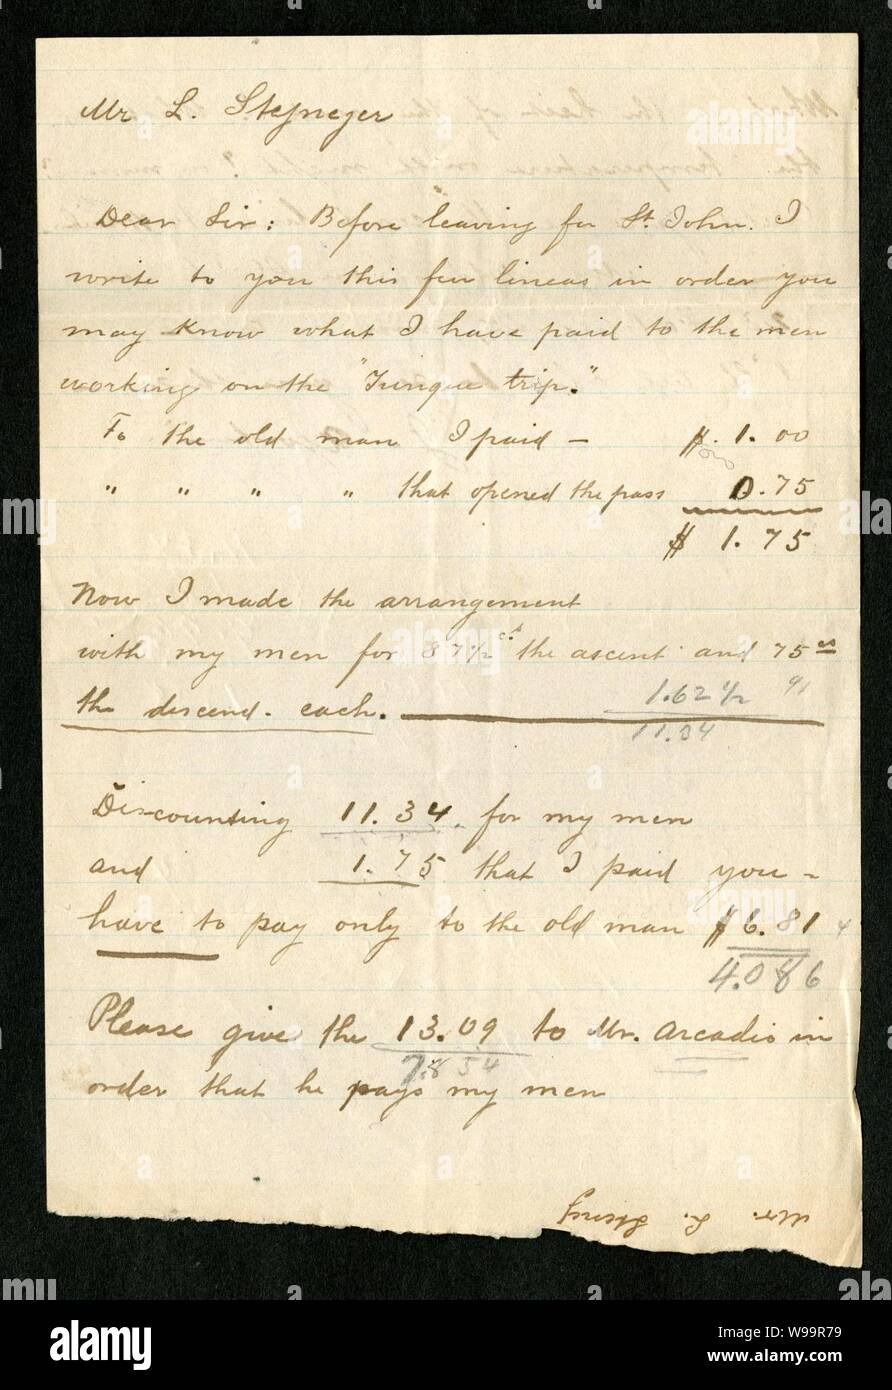 Mr L. Stejneger
Dear Sir: Before leaving for St. John. I
write to you this few lineas in order you
may know what I have paid to the men
working on the "Yunque trip."
To the old man I paid — $. 1. 00
" " " " that opened the pass 0.75
$ 1. 75
Now I made the arrangement
with my men for 87 1/2 cts the ascent and 75 cs
the descend. each.
1.62 1/2
11.34
Discounting 11. 34. for my men
and 1. 75 that I paid you -
have to pay only to the old man $6.81
4.086
Please give the 13.09 to Mr. Arcadio in
7.854
order that he pays my men
Mr. L. Stejneg
alamy
Image ID: W99R79
www.alamy.com